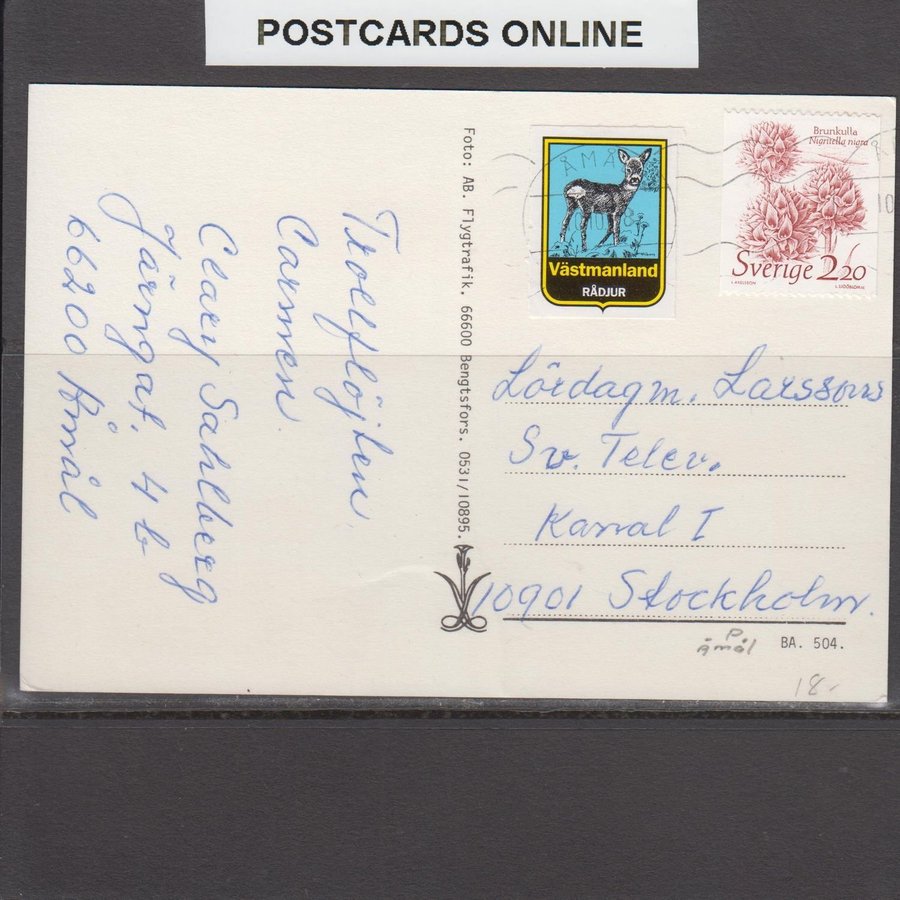 POSTCARDS ONLINE
Trollflöjten
Carmen.
Clary Sahlberg
Järngat. 4 b
66200 Åmål
Foto: AB. Flygtrafik. 66600 Bengtsfors. 0531/10895.
ÅMÅ
Västmanland
RÅDJUR
Brunkulla
Nigritella nigra
Sverige 2.20
10
Lördagm. Larssons
Sv. Telev.
Kanal I
10901 Stockholm.
P
Åmål
BA. 504.
18.-